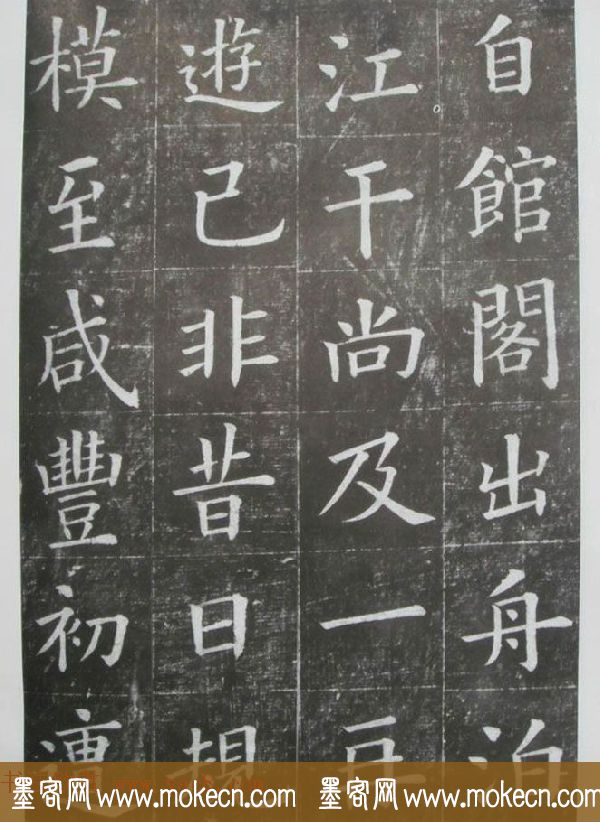 自館閣出舟泊
江干尚及一再
遊已非昔日規
模至咸豐初
墨客网 www.mokecn.com 墨客网 www.mokecn.com